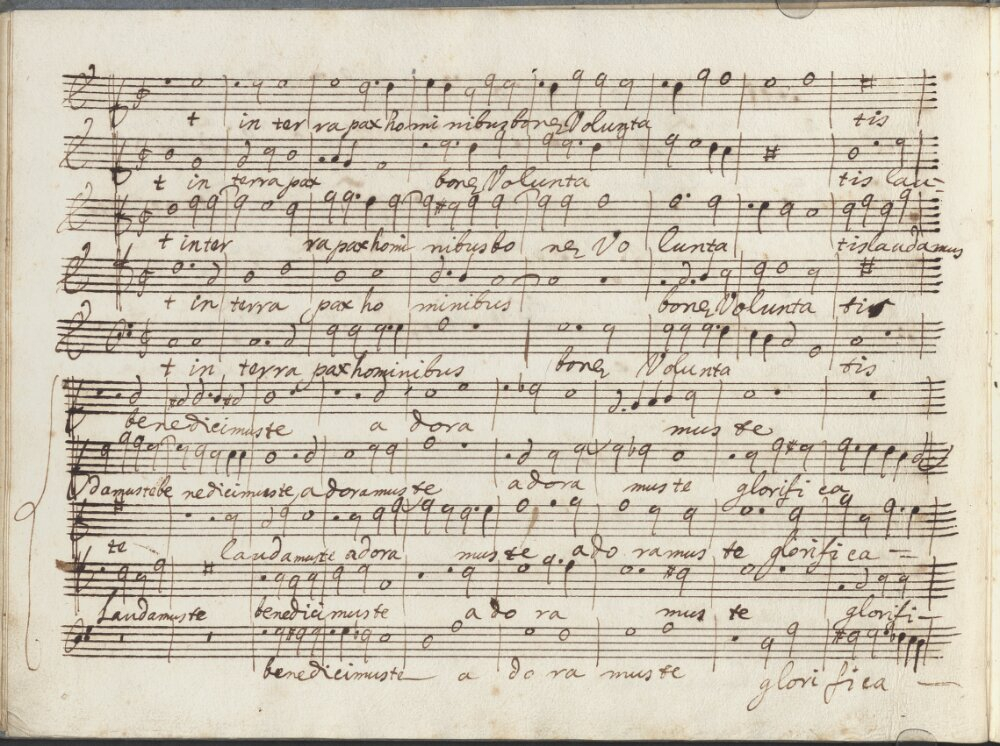 t in ter ra pax ho mi nibus bonę Volunta tis
t in terra pax bonę Volunta tis lau-
t in ter ra pax homi nibus bo nę Vo lunta tis laudamus
t in terra pax ho minibus bonę Volunta tis
t in terra pax hominibus bonę Volunta tis
benedicimuste a dora mus te
damuste be nedicimuste, a doramus te adora mus te glorifi ca
te laudamuste adora mus te ado ramus te glorifi ca —
Laudamuste benedicimuste a do ra mus te glorifi-
benedicimuste a do ra mus te glori fi ca —